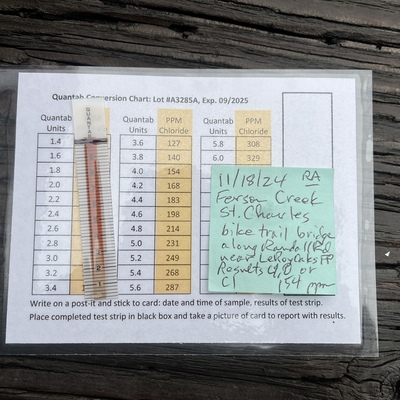 Quantab Conversion Chart: Lot #A3285A, Exp. 09/2025
Quantab Units PPM Chloride Quantab Units PPM Chloride Quantab Units PPM Chloride
1.4 3.6 127 5.8 308
1.6 3.8 140 6.0 329
1.8 4.0 154
2.0 4.2 168
2.2 4.4 183
2.4 4.6 198
2.6 4.8 214
2.8 5.0 231
3.0 5.2 249
3.2 5.4 268
3.4 1 5.6 287
11/18/24 RA
Ferson Creek
St. Charles
bike trail bridge
along Randall Rd
near LeRoy Oakes FP
Results 4.0 or
Cl 154 ppm
Write on a post-it and stick to card: date and time of sample, results of test strip.
Place completed test strip in black box and take a picture of card to report with results.